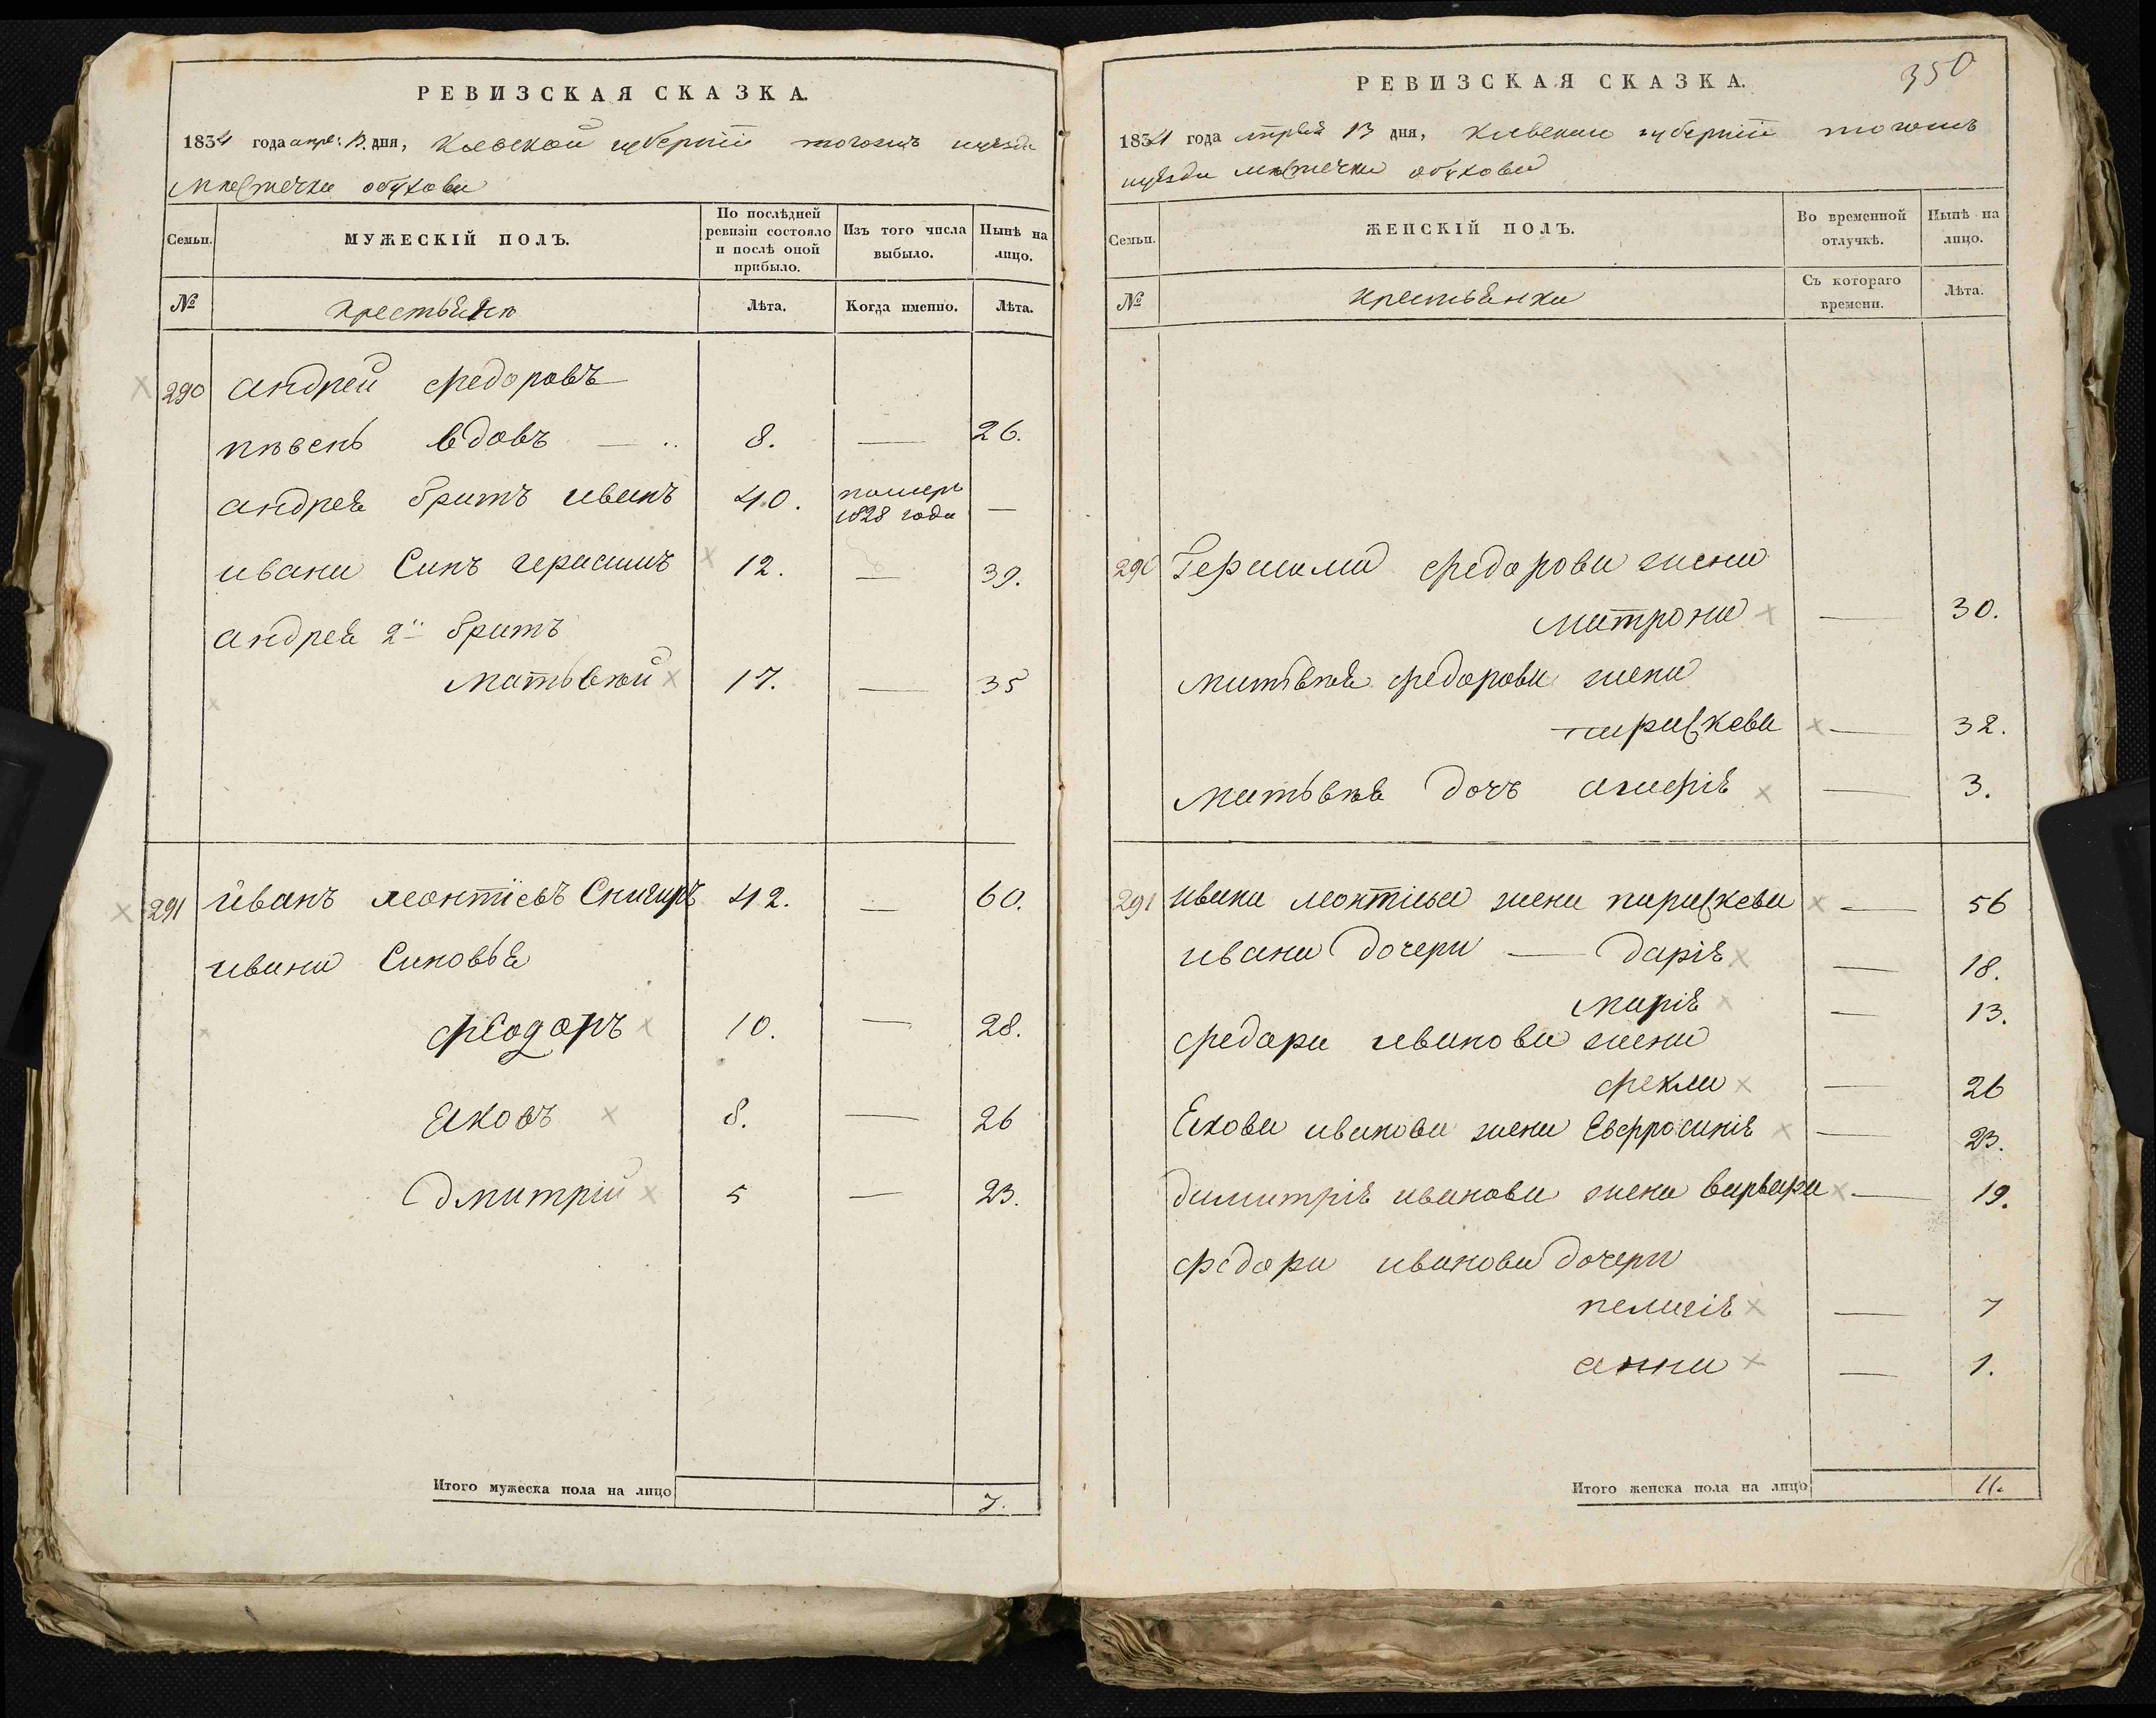 РЕВИЗСКАЯ СКАЗКА.
1834 года апре: 13. дня, Киевской губерніи тогожъ уезда
местечка обухова
Семьи.
МУЖЕСКІЙ ПОЛЪ.
По послѣдней ревизіи состояло и послѣ оной прибыло.
Изъ того числа выбыло.
Нынѣ на лицо.
№
крестьяне
Лѣта.
Когда именно.
Лѣта.
290 андрей федоровъ
пѣвень вдовъ — 8. — 26.
андрея братъ иванъ 40. померъ 1828 года —
ивана Синъ герасимъ 12. — 39.
андрея 2й братъ
матьвѣй 17. — 35
291 иванъ леонтіевъ Снигиръ 42. — 60.
ивана Синовья
феодоръ 10. — 28.
яковъ 8. — 26
дмитрій 5 — 23.
Итого мужеска пола на лицо 7.
350
РЕВИЗСКАЯ СКАЗКА.
1834 года апреля 13 дня, Киевской губерніи тогожъ
уезда местечка обухова
Семьи.
ЖЕНСКІЙ ПОЛЪ.
Во временной отлучкѣ.
Нынѣ на лицо.
№
крестьянки
Съ котораго времени.
Лѣта.
290 Герасима федорова жена
матрона — 30.
матьвѣя федорова жена
параскева — 32.
матьвѣя дочъ агафія — 3.
291 ивана леонтіева жена параскева — 56
ивана дочери — дарія — 18.
марія — 13.
федора иванова жена
фекла — 26
Якова иванова жена Евфросинія — 23.
димитрія иванова жена варвара — 19.
федора иванова дочери
пелагія — 7
анна — 1.
Итого женска пола на лицо 11.